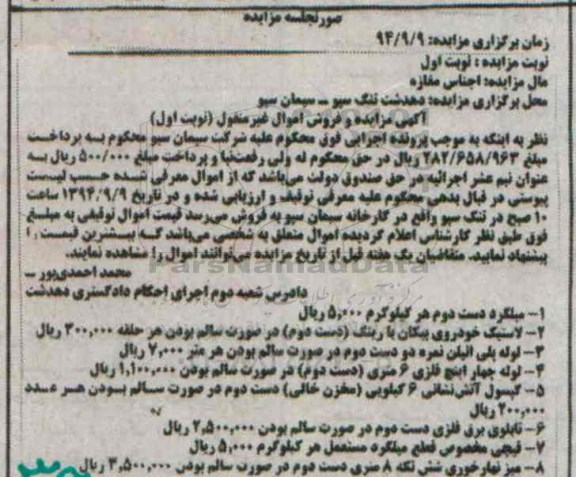 صورتجلسه مزایده
زمان برگزاری مزایده: ۹۴/۹/۹
نوبت مزایده : نوبت اول
مال مزایده: اجناس مغازه
محل برگزاری مزایده: دهدشت تنگ سپو ـ سیمان سپو
آگهی مزایده و فروش اموال غیرمنقول (نوبت اول)
نظر به اینکه به موجب پرونده اجرایی فوق محکوم علیه شرکت سیمان سپو محکوم به پرداخت
مبلغ ۲۸۲/۶۵۸/۹۶۳ ریال در حق محکوم له ولی رفعت‌نیا و پرداخت مبلغ ۵۰۰/۰۰۰ ریال به
عنوان نیم عشر اجرائیه در حق صندوق دولت می‌باشد که از اموال معرفی شده حسب لیست
پیوستی در قبال بدهی محکوم علیه معرفی توقیف و ارزیابی شده و در تاریخ ۱۳۹۴/۹/۹ ساعت
۱۰ صبح در تنگ سپو واقع در کارخانه سیمان سپو به فروش می‌رسد قیمت اموال توقیفی به مبلغ
فوق طبق نظر کارشناس اعلام گردیده اموال متعلق به شخصی می‌باشد که بیشترین قیمت را
پیشنهاد نمایید. متقاضیان یک هفته قبل از تاریخ مزایده می‌توانند اموال را مشاهده نمایند.
محمد احمدی‌پور ـ
دادرس شعبه دوم اجرای احکام دادگستری دهدشت
ParsNamadData
۱- میلگرد دست دوم هر کیلوگرم ۵,۰۰۰ ریال
۲- لاستیک خودروی پیکان با رینگ (دست دوم) در صورت سالم بودن هر حلقه ۳۰۰,۰۰۰ ریال
۳- لوله پلی اتیلن نمره دو دست دوم در صورت سالم بودن هر متر ۷,۰۰۰ ریال
۴- لوله چهار اینچ فلزی ۶ متری (دست دوم) در صورت سالم بودن ۱,۱۰۰,۰۰۰ ریال
۵- کپسول آتش‌نشانی ۶ کیلویی (مخزن خالی) دست دوم در صورت سالم بودن هر عدد
۲۰۰,۰۰۰ ریال
۶- تابلوی برق فلزی دست دوم در صورت سالم بودن ۲,۵۰۰,۰۰۰ ریال
۷- قیچی مخصوص قطع میلگرد مستعمل هر کیلوگرم ۵,۰۰۰ ریال
۸- میز نهارخوری شش تکه ۸ متری دست دوم در صورت سالم بودن ۳,۵۰۰,۰۰۰ ریال